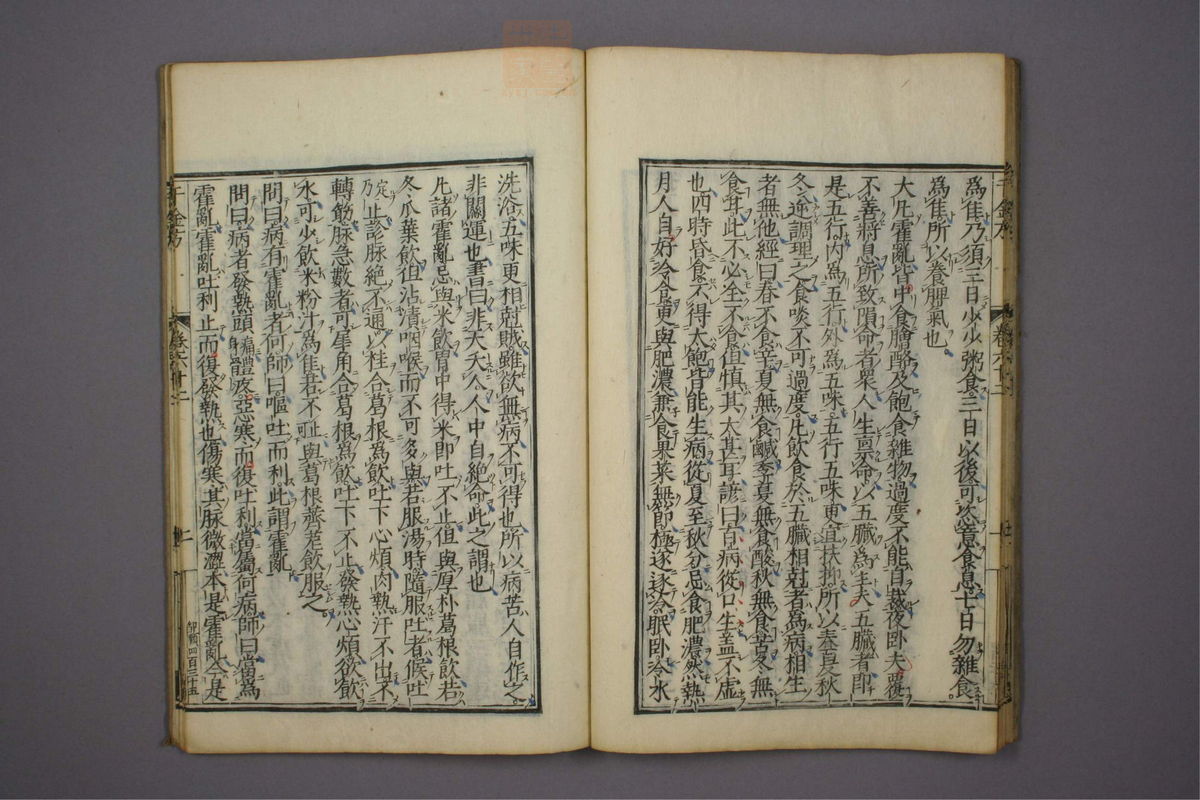 為佳乃須三日少少粥食三日以後可恣意食息七日勿雜食
為佳所以養脾氣也
大凡霍亂皆中食膾酪及飽食雜物過度不能自裁夜臥失覆
不善將息所致隕命者衆人生禀命以五臓為主夫五臓者即
是五行内為五行外為五味五行五味更宜扶抑所以春夏秋
冬逆調理之食啖不可過度凡飲食於五臓相尅者為病相生
者無他經曰春不食辛夏無食鹹季夏無食酸秋無食苦冬無
食甘此不必全不食但慎其太甚耳諺曰百病從口生蓋不虚
也四時昏食不得太飽皆能生病從夏至秋分忌食肥濃然熱
月人自好冷食更與肥濃兼食果菜無節極遂逐冷眠臥冷水
洗浴五味更相尅賊雖欲無病不可得也所以病苦人自作之
非關運也書曰非天夭人人中自絶命此之謂也
凡諸霍亂忌與米飲胃中得米即吐不止但與厚朴葛根飲若
冬瓜葉飲但沾漬咽喉而不可多與若服湯時隨服吐者候吐
定乃止診脉絶不通以桂合葛根為飲吐下心煩肉熱汗不出不
轉筋脉急數者可犀角合葛根為飲吐下不止發熱心煩欲飲
水可少飲米粉汁為佳若不止與葛根薺苨飲服之
問曰病有霍亂者何師曰嘔吐而利此謂霍亂
問曰病者發熱頭痛身體疼惡寒而復吐利當屬何病師曰當為
霍亂霍亂吐利止而復發熱也傷寒其脉微濇本是霍亂今是
千金方
卷六十二